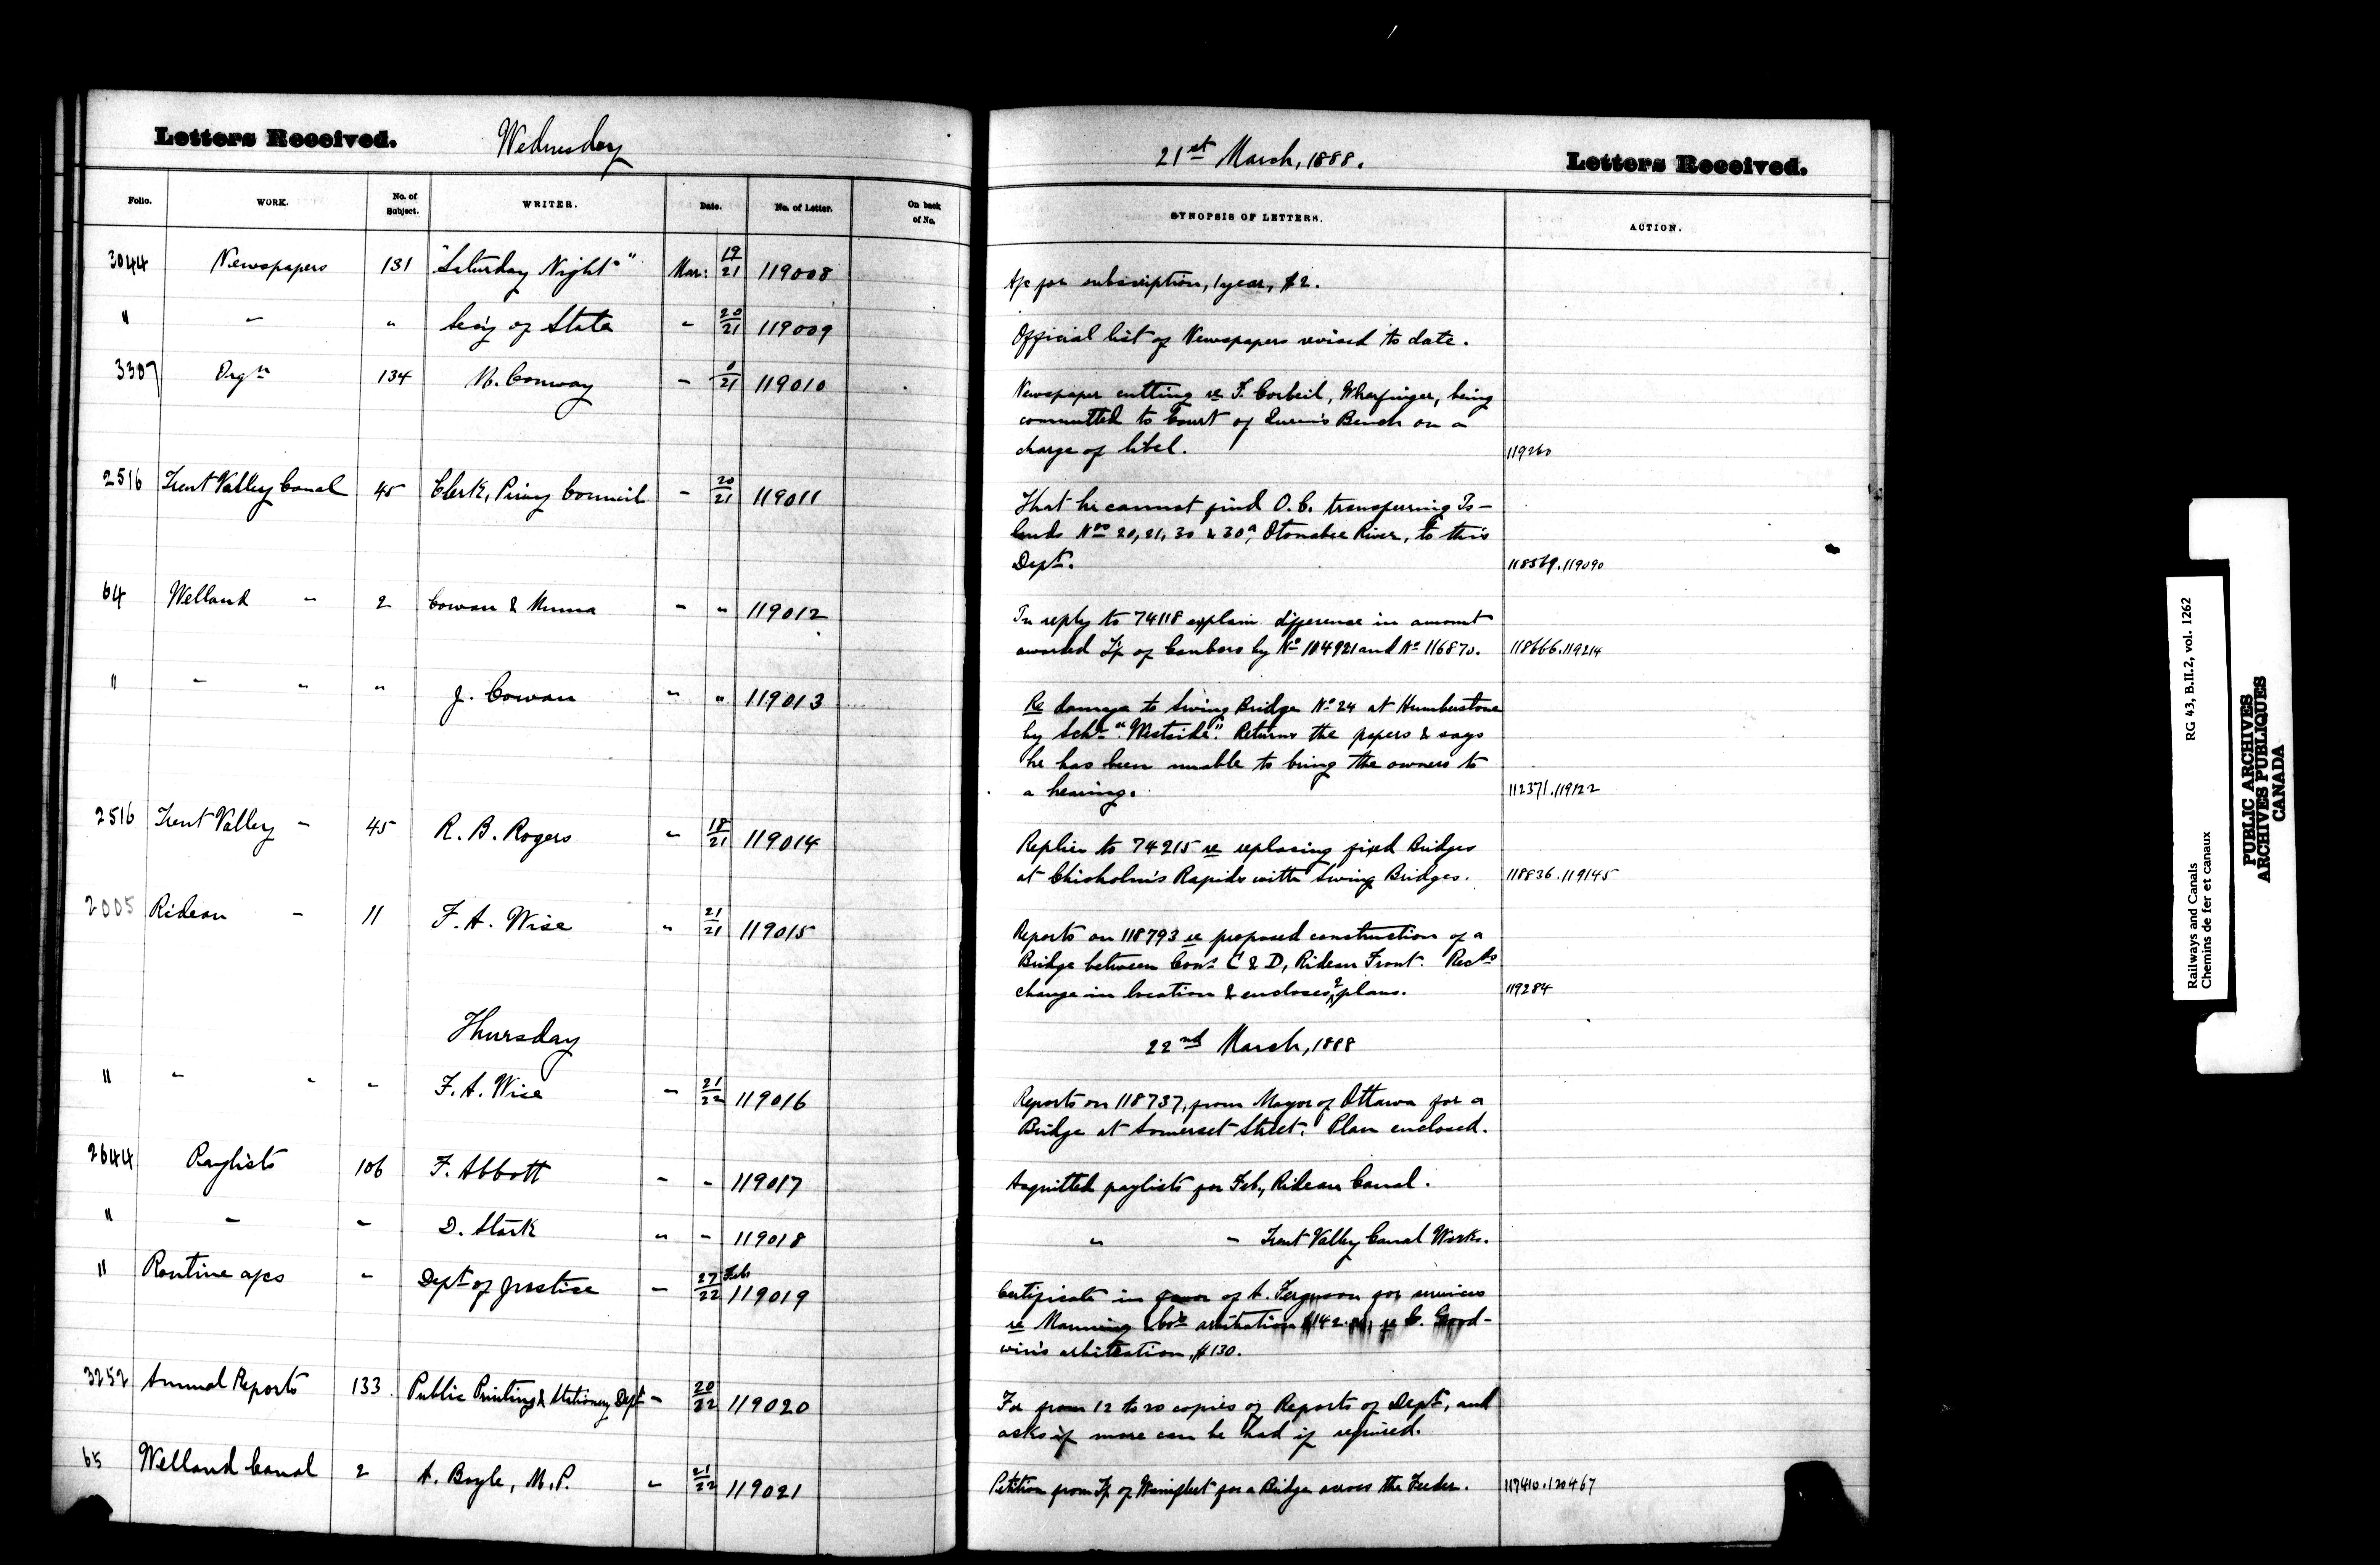 Letters Received. Wednesday 21st March, 1888. Letters Received.
Folio. WORK. No. of Subject. WRITER. Date. No. of Letter. On back of No. SYNOPSIS OF LETTERS. ACTION.
3044 Newspapers 131 "Saturday Night." Mar: 19/21 119008 A/c for subscription, 1 year, $2.
" " " Sec'y of State " 20/21 119009 Official list of Newspapers revised to date.
3307 Orgn 134 M. Conway " 0/21 119010 Newspaper cutting re F. Corbeil, Wharfinger, being
committed to Court of Queen's Bench on a
charge of libel. 119260
2516 Trent Valley Canal 45 Clerk, Privy Council " 20/21 119011 That he cannot find O.C. transferring Is-
lands Nos 20, 21, 30 & 30a, Otonabee River, to this
Dept. 118569.119090
64 Welland " 2 Cowan & Munra " " 119012 In reply to 74118 explain difference in amount
awarded Tp of Canboro by No 104921 and No 116870. 118666.119214
" " " " J. Cowan " " 119013 Re damage to Swing Bridge No 24 at Humberstone
by Schr "Westside". Returns the papers & says
he has been unable to bring the owners to
a hearing. 112371.119122
2516 Trent Valley " 45 R. B. Rogers " 18/21 119014 Replies to 74215 re replacing fixed Bridges
at Chisholm's Rapids with Swing Bridges. 118836.119145
2005 Rideau " 11 F. A. Wise " 21/21 119015 Reports on 118793 re proposed construction of a
Bridge between Cons C & D, Rideau Front. Recds
change in location & encloses 2 plans. 119284
Thursday 22nd March, 1888
" " " " F. A. Wise " 21/22 119016 Reports on 118737, from Mayor of Ottawa for a
Bridge at Somerset Street. Plan enclosed.
2644 Paylists 106 F. Abbott " " 119017 Acquitted paylists for Feb., Rideau Canal.
" " " D. Stark " " 119018 " " Trent Valley Canal Works.
" Routine a/cs " Dept of Justice " 27 Feb/22 119019 Certificate in favor of A. Ferguson for services
re Manning & Co's arbitration $142. re C. Good-
win's arbitration, $130.
3252 Annual Reports 133. Public Printing & Stationery Dept " 20/22 119020 For from 12 to 20 copies of Reports of Dept, and
asks if more can be had if required.
65 Welland Canal 2 A. Boyle, M.P. " 21/22 119021 Petition from Tp of Wainfleet for a Bridge across the Feeder. 117410.120467
Railways and Canals RG 43, B.II.2, vol. 1262
Chemins de fer et canaux
PUBLIC ARCHIVES
ARCHIVES PUBLIQUES
CANADA